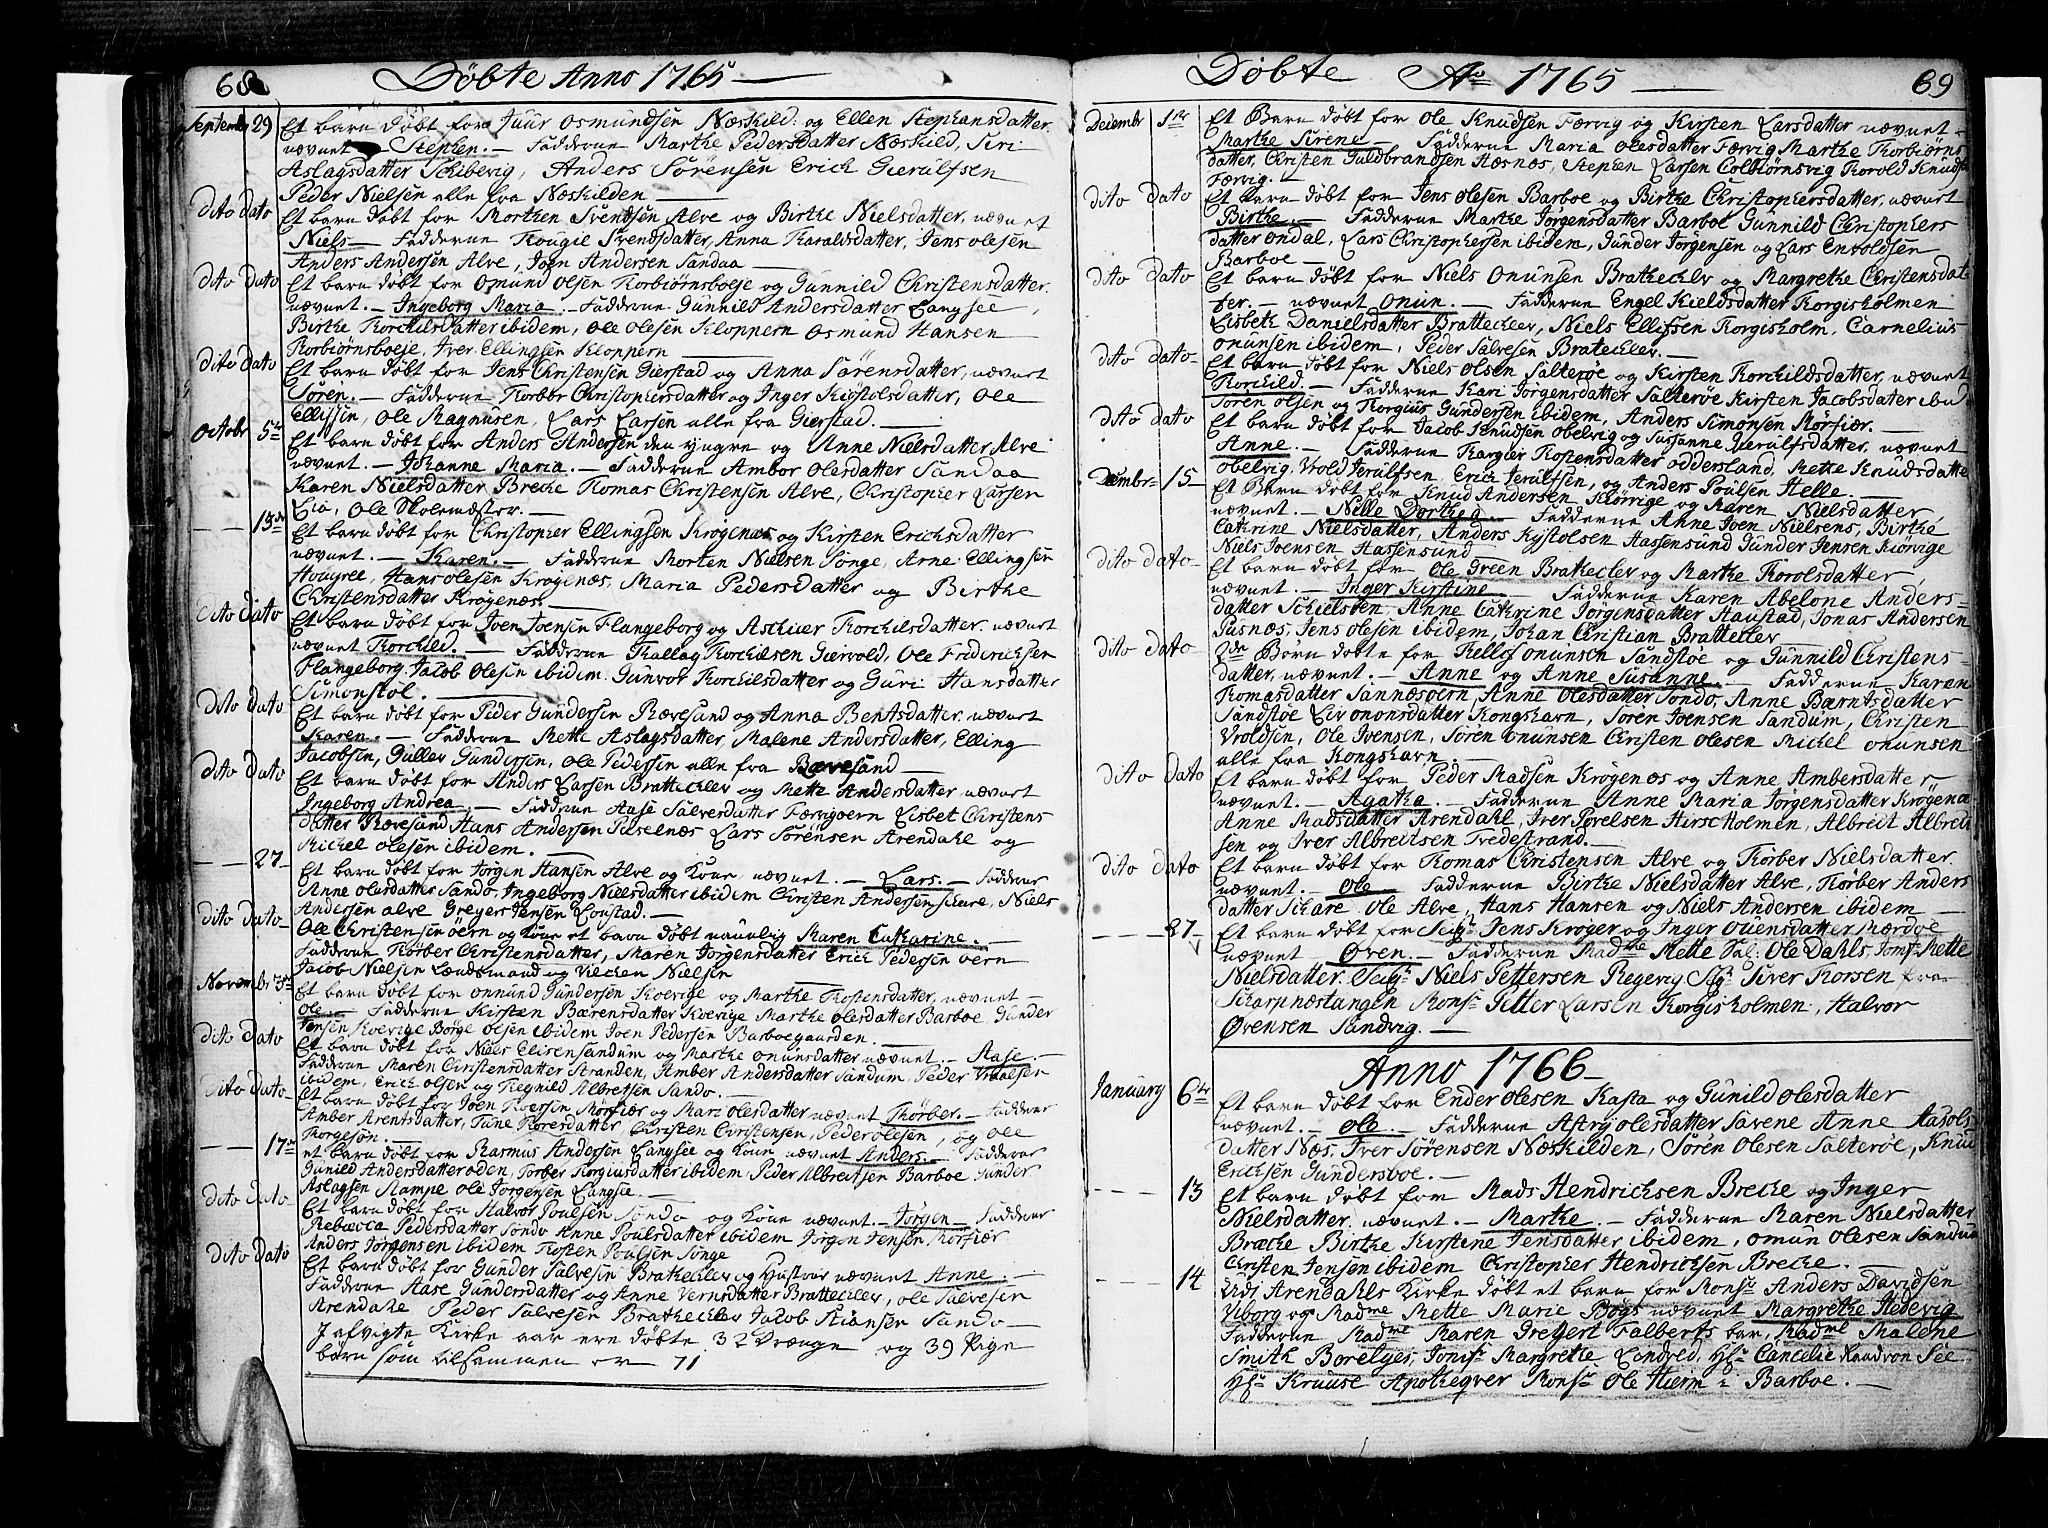 68
Døbte Anno 1765
September 29 Et barn døbt for Juur Osmundsen Næskild: og Ellen Stephansdatter
nævnet Stephen. Fadderne Marthe Pedersdatter Næskild, Siri
Aslagsdatter Schibevig, Anders Sørensen Erich Gierulfsen
Peder Nielsen alle fra Næskilden
dito dato Et barn døbt for Morthen Svendsen Alve og Birthe Nielsdatter, nævnet
Niels Fadderne Tougie Svendsdatter, Anna Haraldsdatter, Jens Olesen
Anders Andersen Alve, Joen Andersen Sandaa
dito dato Et barn døbt for Omund Olsen Torbiørnsboeje og Gunnild Christensdatter
nævnet. Ingeborg Maria. Fadderne Gunnild Andersdatter Langsee,
Birthe Torchilsdatter ibidem, Ole Olesen Kloppern Osmund Hansen
Torbiørnsboeje, Iver Ellingsen Kloppern
dito dato Et barn døbt for Jens Christensen Gierstad og Anna Sørensdatter, nævnet
Søren. Fadderne Torber Christophersdatter og Inger Kiøstolsdatter, Ole
Ellissen, Ole Magnusen, Lars Larsen alle fra Gierstad.
Octobr 5te Et barn døbt for Anders Andersen den yngre og Anne Nielsdatter Alve
nævnet. Johanne Maria. Fadderne Ambor Olesdatter Sandaa
Karen Nielsdatter Breche Thomas Christensen Alve, Christopher Larsen
Lia, Ole Skolemæster.
13de Et barn døbt for Christopher Ellingsen Krøgenæs og Kirsten Erichsdatter
nævnet. Karen. Fadderne Morten Nielsen Songe, Arne Ellingsen
Hougree, Hans Olesen Krøgenæs, Maria Pedersdatter og Birthe
Christensdatter Krøgenæs.
dito dato Et barn døbt for Joen Joensen Flangeborg og Aschier Torchilsdatter nævnet
nævnet Torchild. Fadderne Thallag Torchilsen Giervold, Ole Friderichsen
Flangeborg Jacob Olesen ibidem. Gunvor Torchilsdatter og Guri Hansdatter
Simonstol.
dito dato Et barn døbt for Peder Gundersen Rævesand og Anna Bentsdatter. nævnet
Karen. Fadderne Mette Aslagsdatter, Malene Andersdatter, Elling
Jacobsen, Gullev Gundersen, Ole Pedersen alle fra Rævesand
dito dato Et barn døbt for Anders Larsen Brattechlev og Mette Andersdatter nævnet
Ingeborg Andrea. Fadderne Aase Salvesdatter Færvigoern Lisbet Christens
datter Rævesand Hans Andersen Pilselnæs Lars Sørensen Arendahl og
Michel Olesen ibidem.
27 Et barn døbt for Jørgen Hansen Alve og Kone nævnet. Lars. Fadderne
Anne Olesdatter Sando, Ingeborg Nielsdatter ibidem Christen Andersen Schare, Niels
Andersen Alve Gregers Jensen Lonstad.
dito dato Ole Christensen Øern og Kone et barn døbt naunlig Maren Catharine.
Fadderne Torber Christensdatter, Maren Jørgensdatter Erich Pedersen Øern
Jacob Nielsen Landsmand og Vilchen Nielsen
Novembr 3de Et barn døbt for Onnund Gundersen Koevige og Marthe Tostensdatter, nævnet
Ole. Fadderne Kirsten Bærensdatter Koevige Marthe Olesdatter Barboe, Gunder
Jensen Koevige Børge Olsen ibidem Joen Pedersen Barboegaarden.
dito dato Et barn døbt for Niels Elisen Sandum og Marthe Onunsdatter nævnet. Aase.
Fadderne Maren Christensdatter Stranden, Amber Andersdatter Sandum, Peder Vraalsen
ibidem, Erich Olsen og Regnild Albretsen Sando.
dito dato Et barn døbt for Joen Iversen Mørfiær og Mari Olesdatter nævnet Thorber. Fadderne
Amber Arentsdatter, Tune Toresdatter, Christen Christensen, Peder Olesen, og Ole
Torgesøn.
17de et barn døbt for Rasmus Andersen Langsee og Kone nævnet Anders. Fadderne
Gunild Andersdatter Oden, Torber Torgiusdatter ibidem Peder Albretsen Barboe Gunder
Aslagsen Rampe Ole Jørgensen Langsee.
dito dato Et barn døbt for Halvor Poulsen Sando og Kone nævnet. Jørgen Fadderne
Rebecca Pedersdatter Sando Anne Poulsdatter ibidem Jørgen Jensen Mørfiær
Anders Jørgensen ibidem Tosten Poulsen Songe
dito dato Et barn døbt for Gunder Salvesen Brattechlev og Hustrue nævnet Anne.
Fadderne Aase Gundersdatter og Anne Vernsdatter Brattechlev, Ole Salvesen
Arendahl Peder Salvesen Brathechlev Jacob Stiansen Sando
I afvigte Kirke aar ere døbte 32 Drænge og 39 Pige
børn som tilsammen er 71

Døbte Ao 1765
69
Decembr 1ste Et Barn døbt for Ole Knudsen Færvig og Kirsten Larsdatter nævnet
Marthe Sirene. Fadderne Maria Olesdatter Færvig Marthe Torbiørns
datter, Christen Guldbrandsen Hæsnæs, Stephen Larsen Colbiørnsvig Torold Knudsen
Færvig.
dito dato Et barn døbt for Jens Olesen Barboe og Birthe Christophersdatter, nævnet
Birthe. Fadderne Marthe Jørgensdatter Barboe Gunnild Christophers
datter Ondal, Lars Christophersen ibidem, Gunder Jørgensen og Lars Envoldsen
Barboe
dito dato Et barn døbt for Niels Onunsen Brathechlev og Margrethe Christensdat
ter. nævnet Onun. Fadderne Engel Kieldsdatter Torgisholmen
Lisbeth Danielsdatter Brattechlev, Niels Ellifsen Torgisholm, Carnelius
Onunsen ibidem, Peder Salvesen Bratechlev.
dito dato Et barn døbt for Niels Olsen Salterøe og Kirsten Torchildsdatter, nævnet
Torchild. Fadderne Kari Jørgensdatter Salterøe Kirsten Jacobsdater ibid
Søren Olsen og Torgius Gundersen ibidem, Anders Simonsen Mørfiær.
dito dato Et barn døbt for Jacob Knudsen Obelvig og Susanne Gierulfsdatter, nævnet
Anne. Fadderne Targier Tostensdatter Oddersland, Mette Knudsdatte
Obelvig, Vrold Jerulfsen, Erich Jerulfsen, og Anders Poulsen Helle.
Decembr 15 Et Barn døbt for Knud Andersen Kiørvige og Karen Nielsdatter
nævnet. Nelle Dorthea. Fadderne Anne Joen Nielsens, Birthe
Cathrine Nielsdatter, Anders Kystolsen Hassensund Gunder Jensen Kiørvige
Niels Joensen Hassensund
dito dato Et barn døbt for Ole Green Brathechlev og Marthe Torolsdatter,
nævnet. Inger Kirstine. Fadderne Karen Abelone Anders
datter Schielsøen, Anne Cathrine Jørgensdatter Haustad, Jonas Andersen
Pusnæs, Jens Olesen ibidem, Johan Christian Brattechlev
dito dato 2de Børn døbte for Kellof Onunsen Sandstøe og Gunnild Christens
datter, nævnet. Anne og Anne Susanne. Fadderne Karen
Tomasdatter Sannæsoern, Anne Olesdatter Sondo, Anne Bærntsdatter
Sandstøe Liv Ononsdatter Kongshavn, Søren Joensen Sandum, Christen
Vroldsen, Ole Joensen, Søren Onunsen Christen Olesen Michel Onunsen
alle fra Kongshavn
dito dato Et barn døbt for Peder Madsen Krøgenæs og Anne Ambersdatter
nævnet. Agatha. Fadderne Anne Maria Jørgensdatter Krøgenæ
Anne Madsdatter Arendahl, Iver Torelsen Hirscholmen, Albredt Albredt
sen og Iver Albreitsen Tredestrand.
dito dato Et barn døbt for Thomas Christensen Alve og Torber Nielsdatter
nævnet. Ole Fadderne Birthe Nielsdatter Alve, Torber Anders
datter Schare Ole Alve, Hans Hansen og Niels Andersen ibidem
27 Et barn døbt for Sigr Jens Krøger og Inger Ouensdatter Mærdøe
nævnet Øven. Fadderne Madme Mette Sal: Ole Dahls, Jomf. Mette
Nielsdatter. Seigr Niels Pettersen Regevig Sigr Siver Torsen fra
Scharpnæstangen Monsr Petter Larsen Torgisholmen, Halvor
Ørensen Sandvig.
Anno 1766
January 6te Et barn døbt for Ender Olesen Kasta og Gunild Olesdatter
nævnet. Ole. Fadderne Astry Olesdatter Savene Anne Aasols
datter Næs, Iver Sørensen Næskilden, Søren Olesen Salterøe, Knud
Erichsen Gundersboe.
13 Et barn døbt for Mads Hendrichsen Breche og Inger
Nielsdatter. nævnet. Marthe. Fadderne Maren Nielsdatter
Breche Birthe Kirstine Jensdatter ibidem, Omun Olesen Sandum
Christen Jensen ibidem Christopher Hendrichsen Breche.
14 Udi Arendahls Kirke døbt et barn for Monsr Anders Davidsen
Viborg og Madme Mette Marie Bøgs nævnet Margrethe Hedevig
Fadderne Madme Maren Greyert Falberts bar, Madme Malene
Smith Borelyes, Jomfr Margrethe Lindred, Hr Cancelie Raad von See
Hr Kruuse Apothegver Monsr Ole Hierm i Barboe.